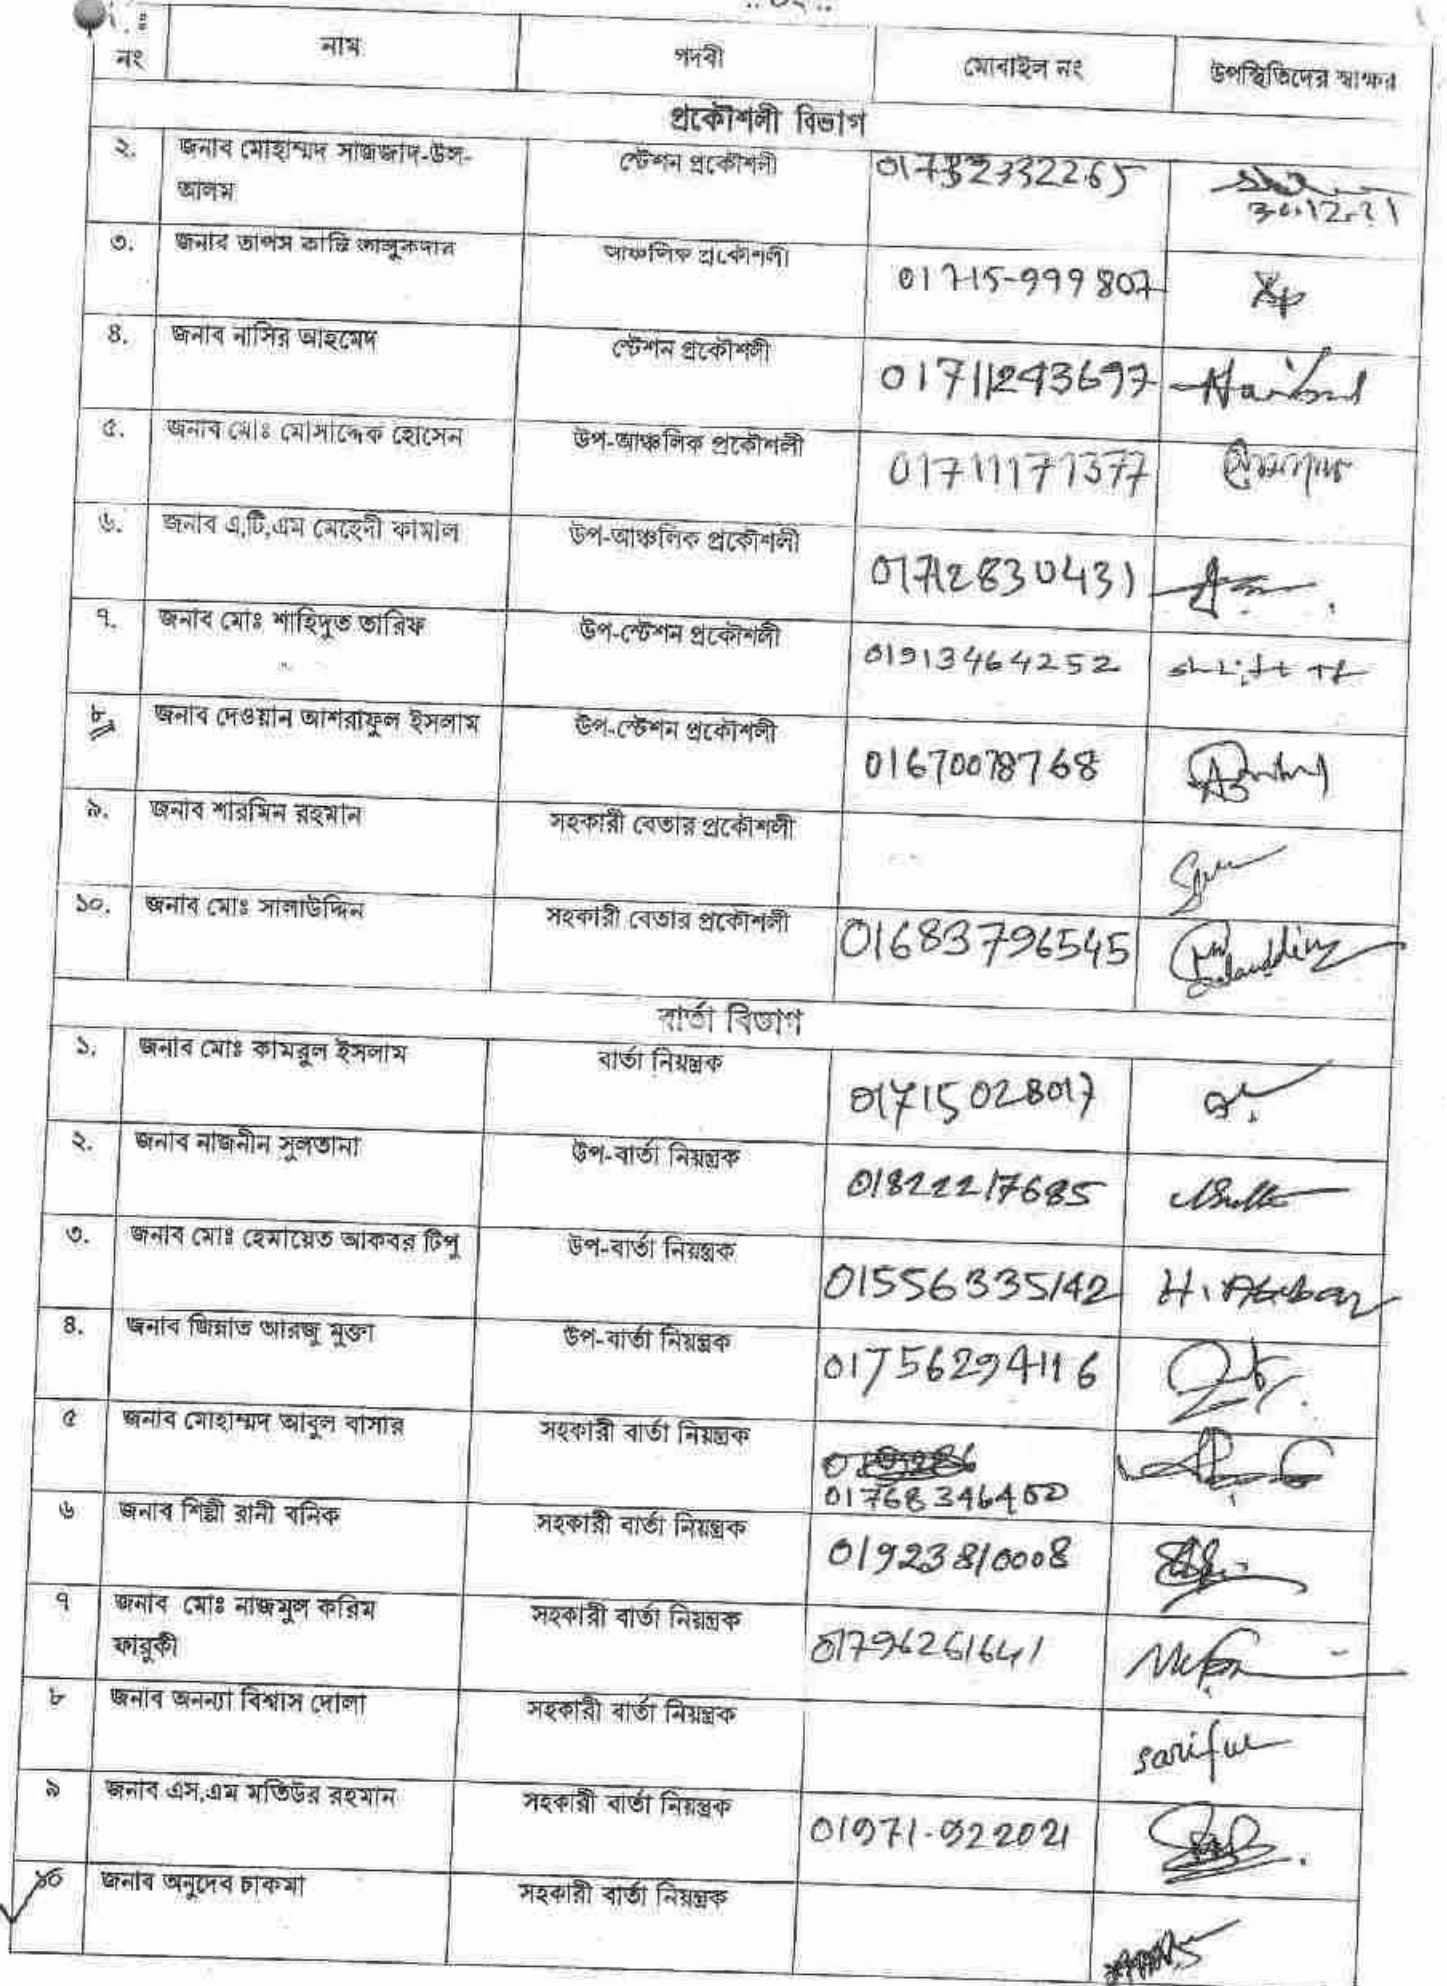 .. ০২ ..
নং নাম পদবী মোবাইল নং উপস্থিতিদের স্বাক্ষর
প্রকৌশলী বিভাগ
২. জনাব মোহাম্মদ সাজ্জাদ-উল- স্টেশন প্রকৌশলী
আলম
30.12.21
৩. জনাব তাপস কান্তি তালুকদার আঞ্চলিক প্রকৌশলী 01715-999807
৪. জনাব নাসির আহমেদ স্টেশন প্রকৌশলী 01711243697
৫. জনাব মোঃ মোসাদ্দেক হোসেন উপ-আঞ্চলিক প্রকৌশলী 01711171377
৬. জনাব এ,টি,এম মেহেদী কামাল উপ-আঞ্চলিক প্রকৌশলী 01712830431
৭. জনাব মোঃ শাহিদুত তারিফ উপ-স্টেশন প্রকৌশলী 01913464252
৮ জনাব দেওয়ান আশরাফুল ইসলাম উপ-স্টেশন প্রকৌশলী 01670078768
৯. জনাব শারমিন রহমান সহকারী বেতার প্রকৌশলী
১০. জনাব মোঃ সালাউদ্দিন সহকারী বেতার প্রকৌশলী 01683796545 Salauddin
বার্তা বিভাগ
১. জনাব মোঃ কামরুল ইসলাম বার্তা নিয়ন্ত্রক 01715028017
২. জনাব নাজনীন সুলতানা উপ-বার্তা নিয়ন্ত্রক 01822217685
৩. জনাব মোঃ হেমায়েত আকবর টিপু উপ-বার্তা নিয়ন্ত্রক 01556335142 H. Akbar
৪. জনাব জিন্নাত আরজু মুক্তা উপ-বার্তা নিয়ন্ত্রক 01756294116
৫ জনাব মোহাম্মদ আবুল বাসার সহকারী বার্তা নিয়ন্ত্রক
01768346402
৬ জনাব শিল্পী রানী বনিক সহকারী বার্তা নিয়ন্ত্রক 01923810008
৭ জনাব মোঃ নাজমুল করিম সহকারী বার্তা নিয়ন্ত্রক 01796261641
ফারুকী
৮ জনাব অনন্যা বিশ্বাস দোলা সহকারী বার্তা নিয়ন্ত্রক sariful
৯ জনাব এস,এম মতিউর রহমান সহকারী বার্তা নিয়ন্ত্রক 01971-922021
১০ জনাব অনুদেব চাকমা সহকারী বার্তা নিয়ন্ত্রক